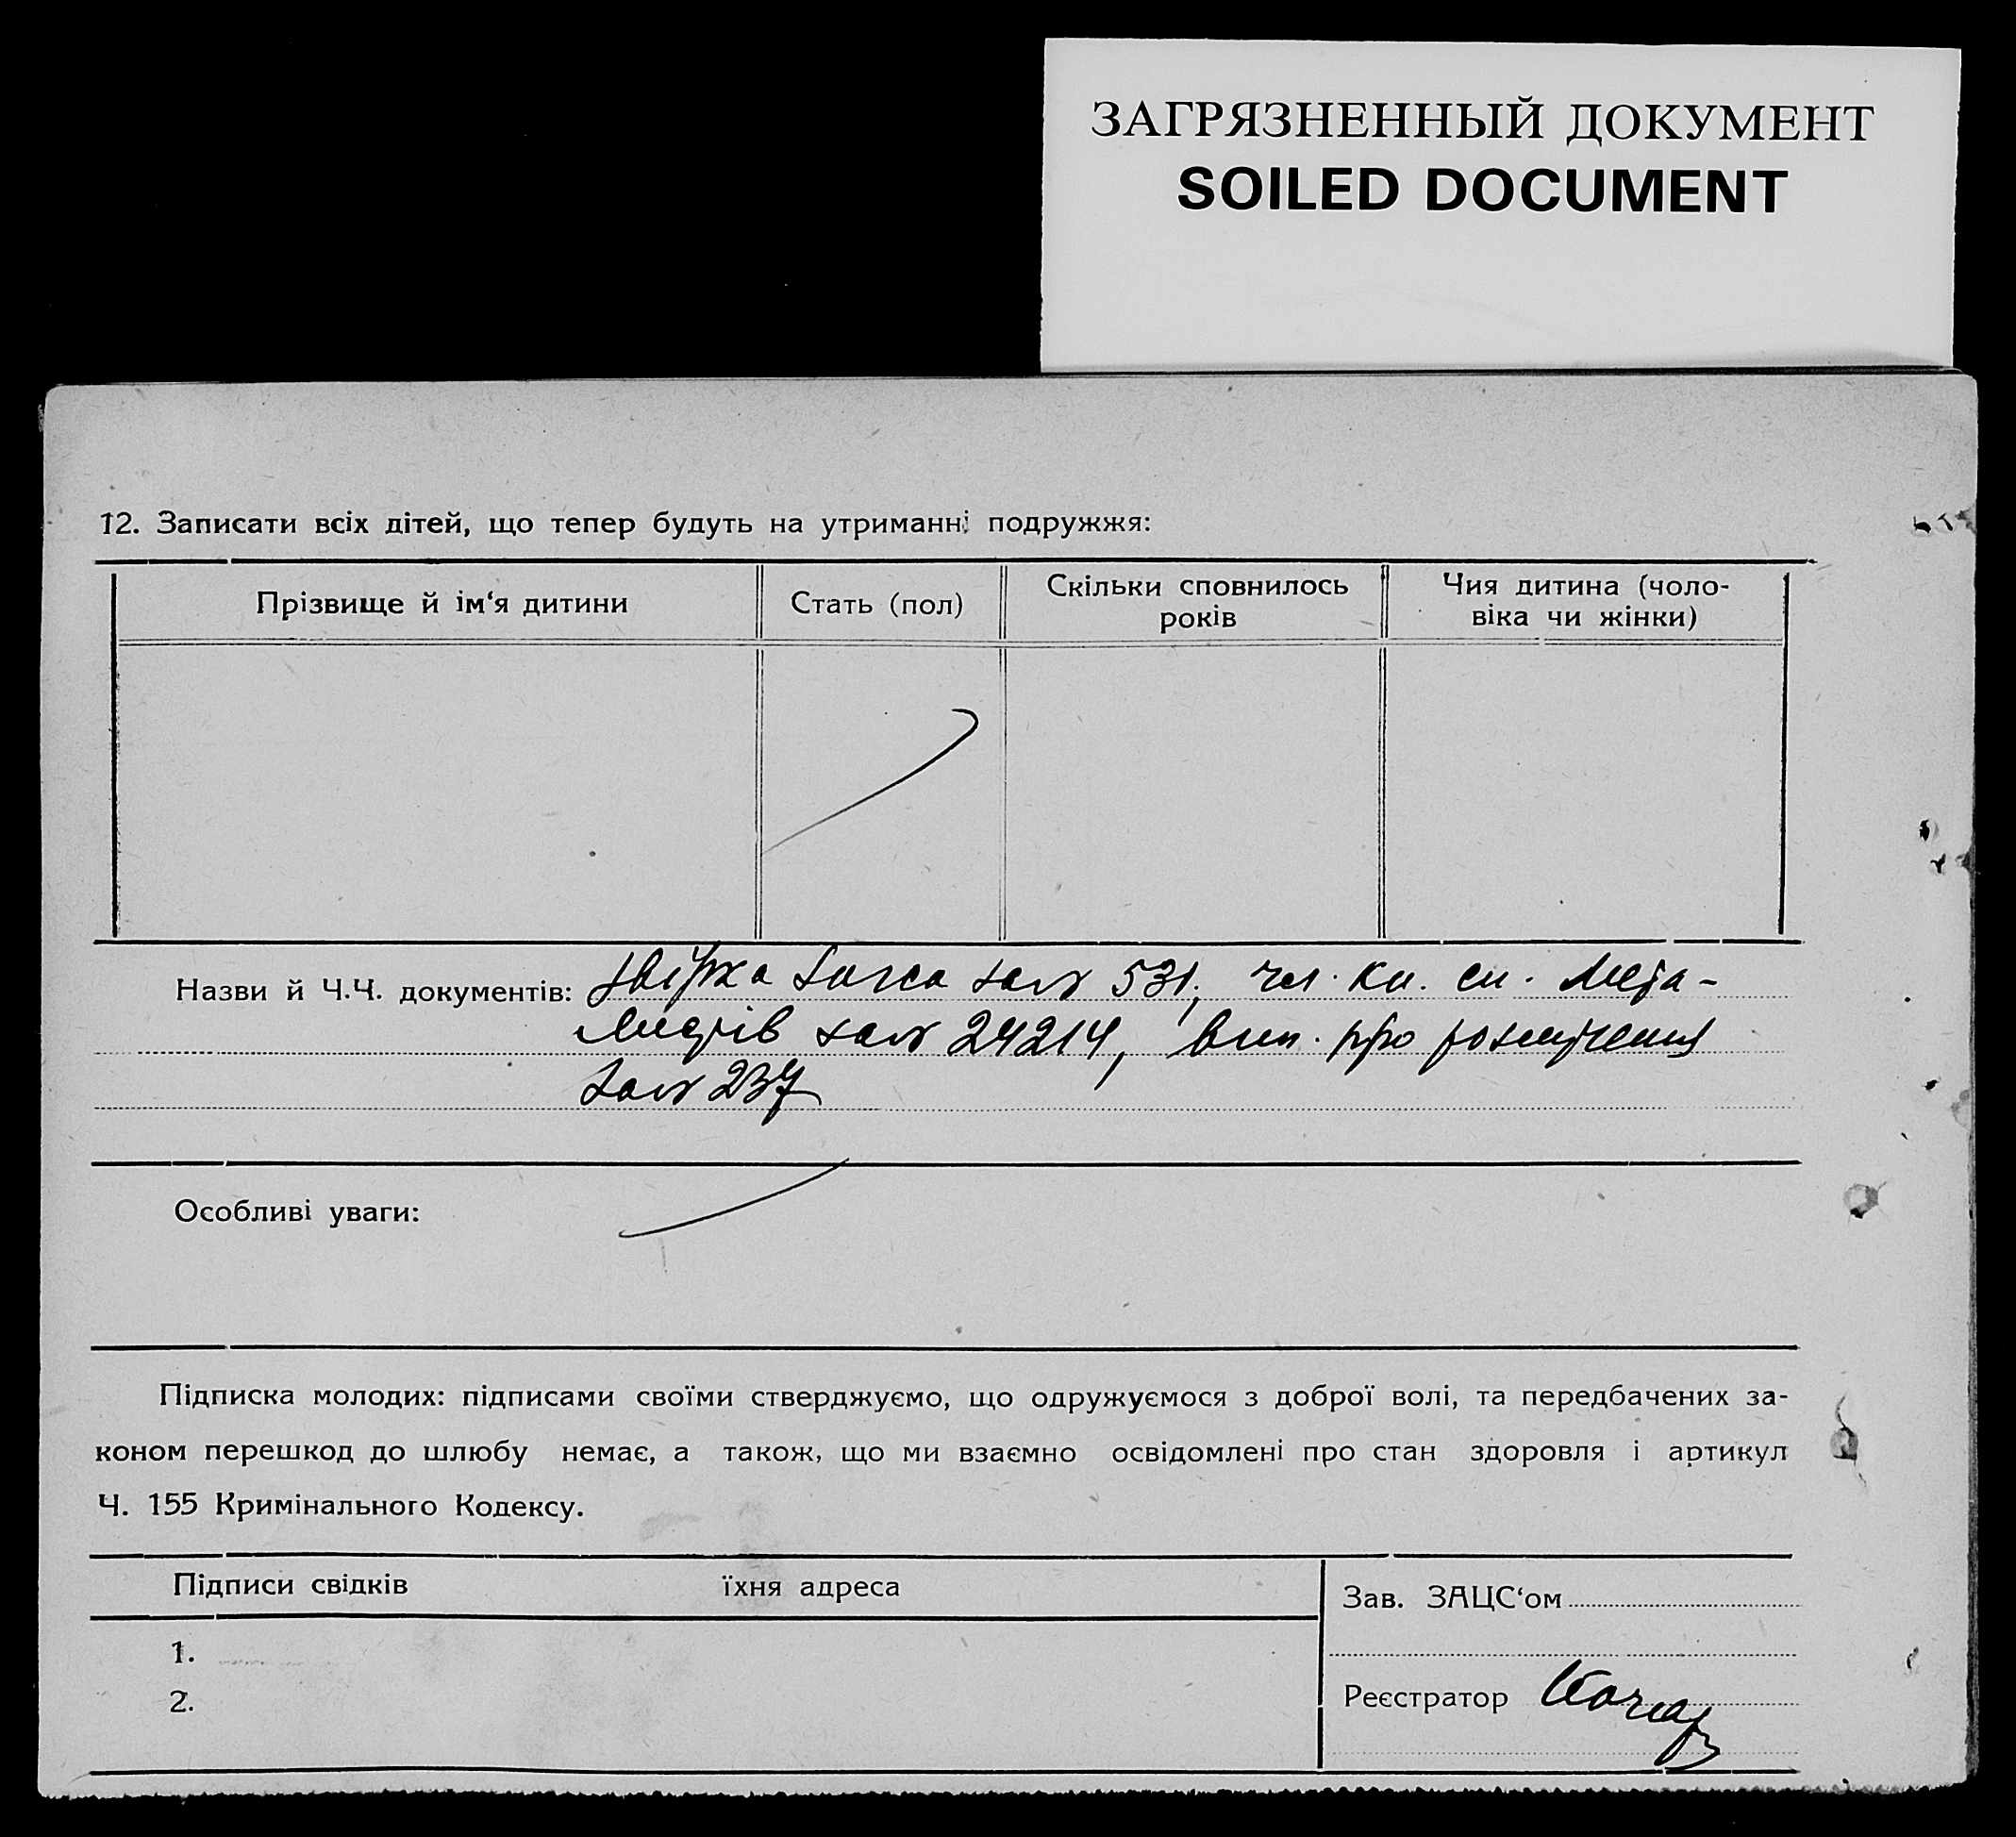 ЗАГРЯЗНЕННЫЙ ДОКУМЕНТ
SOILED DOCUMENT
12. Записати всіх дітей, що тепер будуть на утриманні подружжя:
Прізвище й ім‘я дитини
Стать (пол)
Скільки сповнилось
років
Чия дитина (чоло-
віка чи жінки)
Назви й Ч.Ч. документів: 531, чл. кн. сп. Мета-
24214, вип. про розлучення
237
Особливі уваги:
Підписка молодих: підписами своїми стверджуємо, що одружуємося з доброї волі, та передбачених за-
коном перешкод до шлюбу немає, а також, що ми взаємно освідомлені про стан здоровля і артикул
Ч. 155 Кримінального Кодексу.
Підписи свідків їхня адреса
Зав. ЗАЦС‘ом
1.
2.
Реєстратор